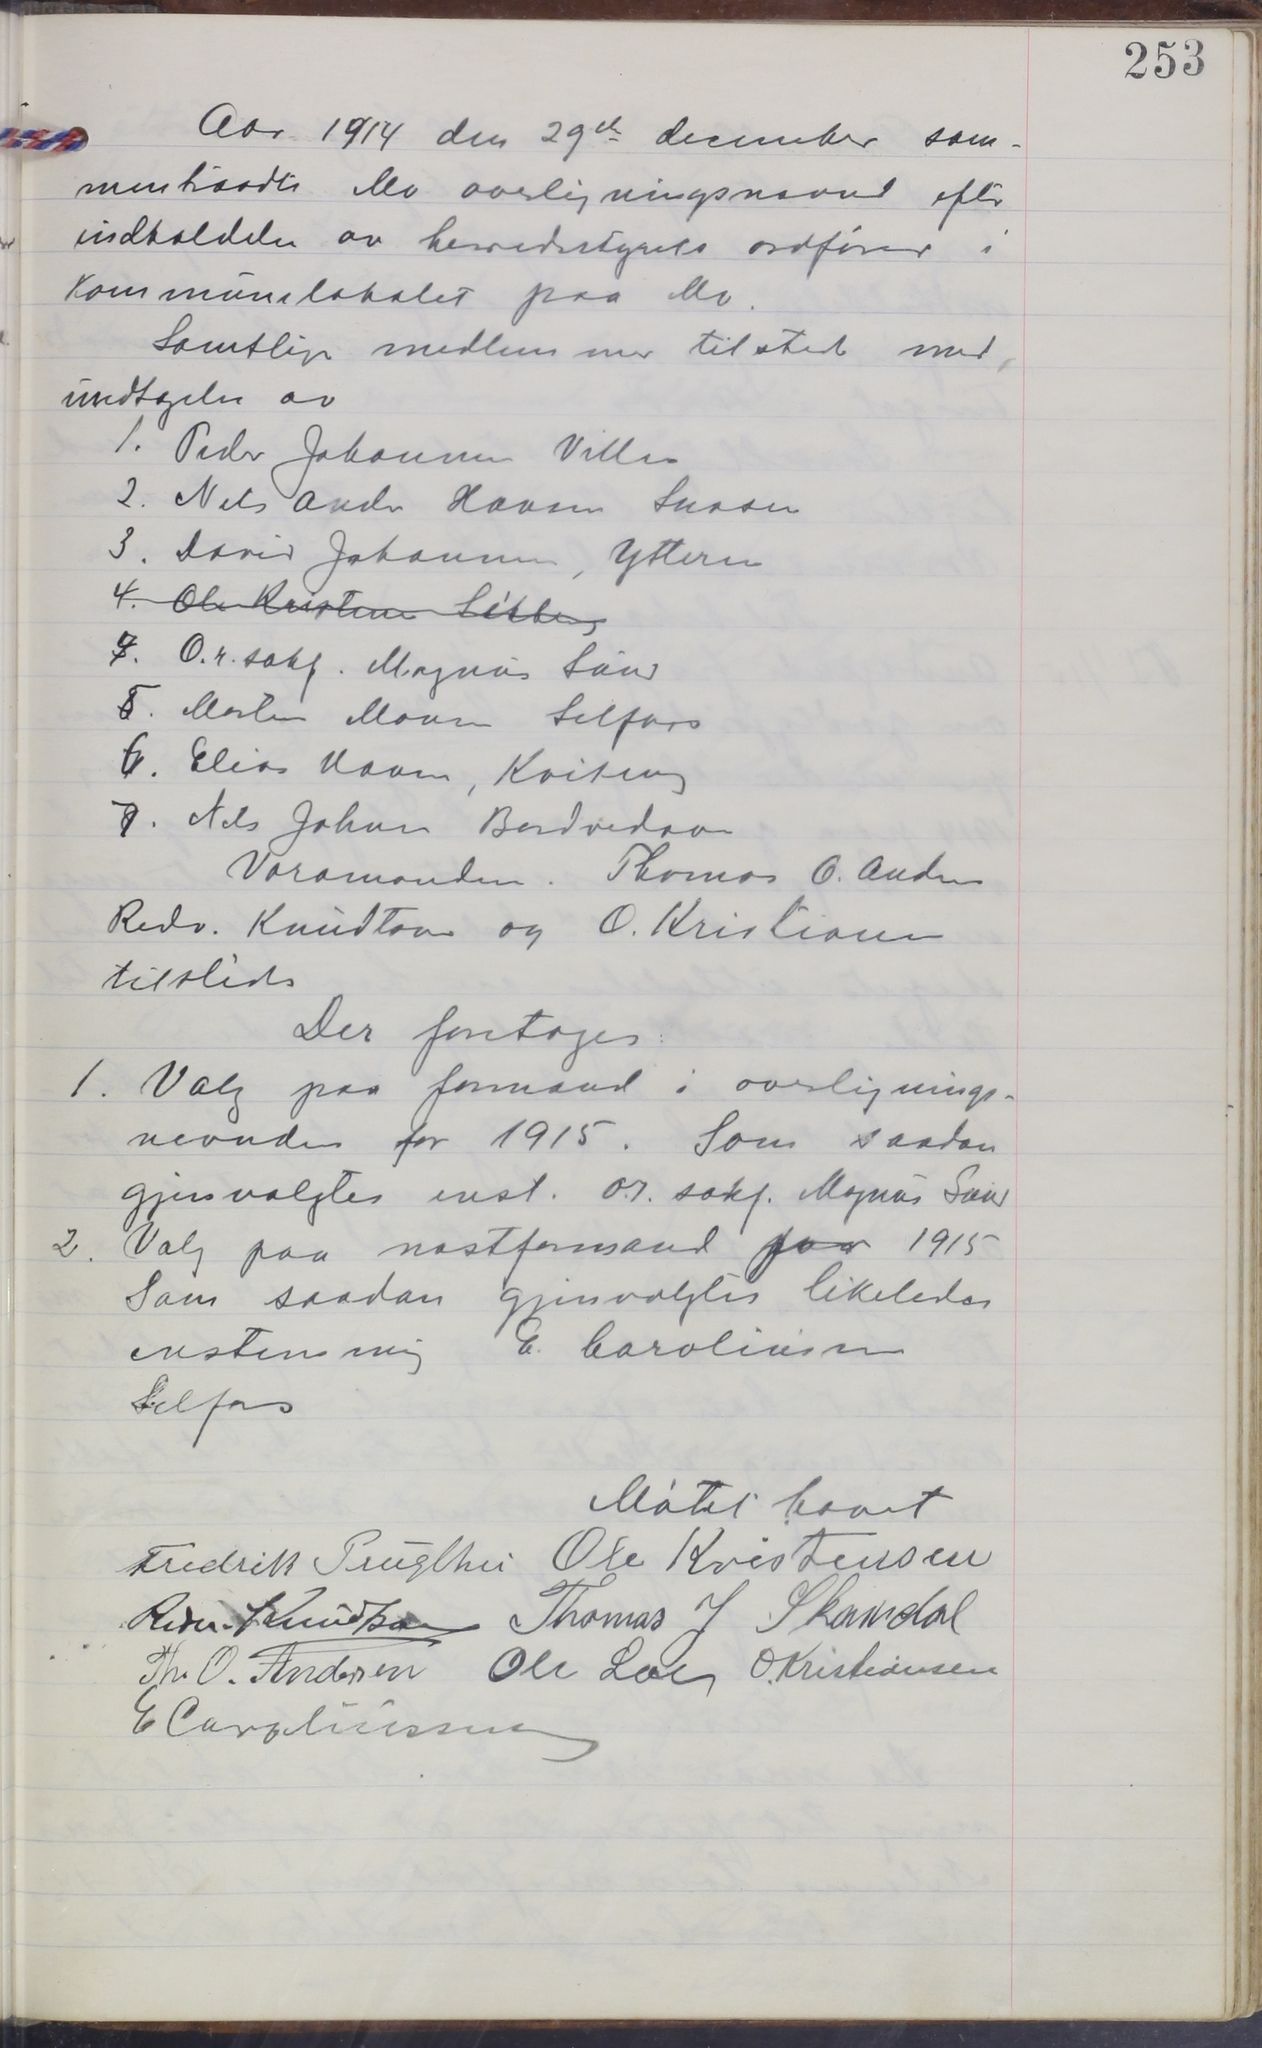 253
Aar 1914 den 29de december sam-
mentraadte Mo overligningsnævnd efter
indkaldelse av herredsstyrets ordfører i
Kommunelokalet paa Mo.
Samtlige medlemmer tilstede med
undtagelse av
1. Peder Johannesen
2. Nels Andr Hansen
3. David Johannesen, Ytteren
4. Ole Kristensen
4. O.r. sakf. Magnus Sund
5. Morten Monsen Selfors
6. Elias Monsen, Kviteng
7. Nels Johnsen
Varamændene. Thomas O. Anders
Redv. Knudtsen og O. Kristiansen
tilstede
Der foretages:
1. Valg paa formand i overlignings-
nevnden for 1915. Som saadan
gjenvalgtes enst. o.r. sakf. Magnus Sund
2. Valg paa nestformand for 1915
Som saadan gjenvalgtes likeledes
enstemmig E. Caroliussen
Selfors
Møtet hævet
Fredrik Ole Kristensen
Redv. Knudtsen Thomas J Skamdal
Th. O. Andersen Ole O. Kristiansen
E Caroliussen